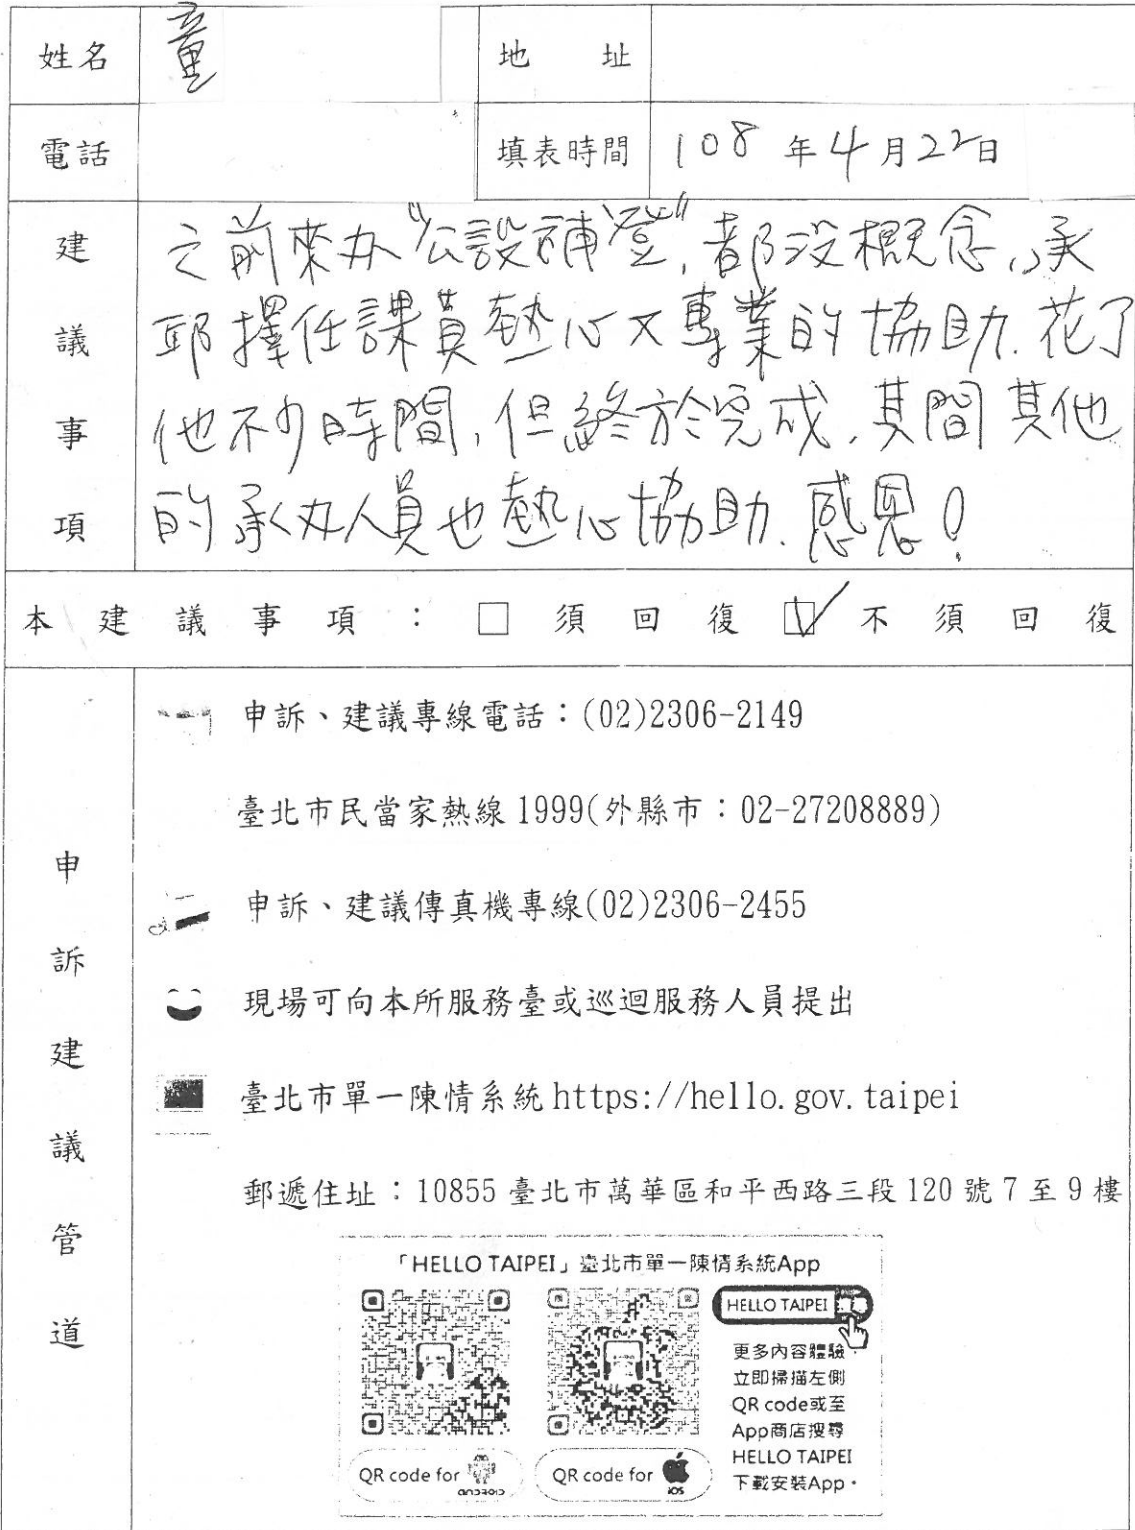 姓名 童 地址
電話 填表時間 108年4月22日
建議事項
之前來办"公設補登",都没概念,承
邱擇任課員热心又專業的協助.花了
他不少時間,但終於完成,其間其他
的承办人員也热心協助.感恩!
本建議事項:□須回復☑不須回復
申訴建議管道
申訴、建議專線電話:(02)2306-2149
臺北市民當家熱線1999(外縣市:02-27208889)
申訴、建議傳真機專線(02)2306-2455
現場可向本所服務臺或巡迴服務人員提出
臺北市單一陳情系統https://hello.gov.taipei
郵遞住址:10855臺北市萬華區和平西路三段120號7至9樓
「HELLO TAIPEI」臺北市單一陳情系統App
HELLO TAIPEI
更多內容體驗,
立即掃描左側
QR code或至
App商店搜尋
HELLO TAIPEI
下載安裝App。
QR code for ANDROID
QR code for iOS